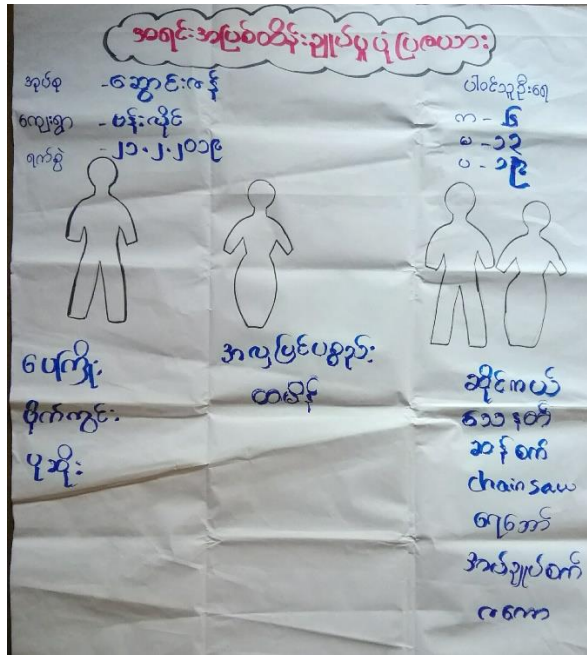 အရင်းအမြစ်ထိန်းချုပ်မှုပုံပြဇယား
အုပ်စု - ဆောင်းဇန်
ကျေးရွာ - ဗန်းလိုင်
ရက်စွဲ - ၂၁.၂.၂၀၁၉
ပါဝင်သူဦးရေ
က - ၆
မ - ၁၃
ပ - ၁၉
ပေကြိုး
ပိုက်ကွင်း
ပုဆိုး
အလှပြင်ပစ္စည်း
ထမိန်
ဆိုင်ကယ်
သေနတ်
ဆန်စက်
chainsaw
ရေအော်
အပ်ချုပ်စက်
ဇကော